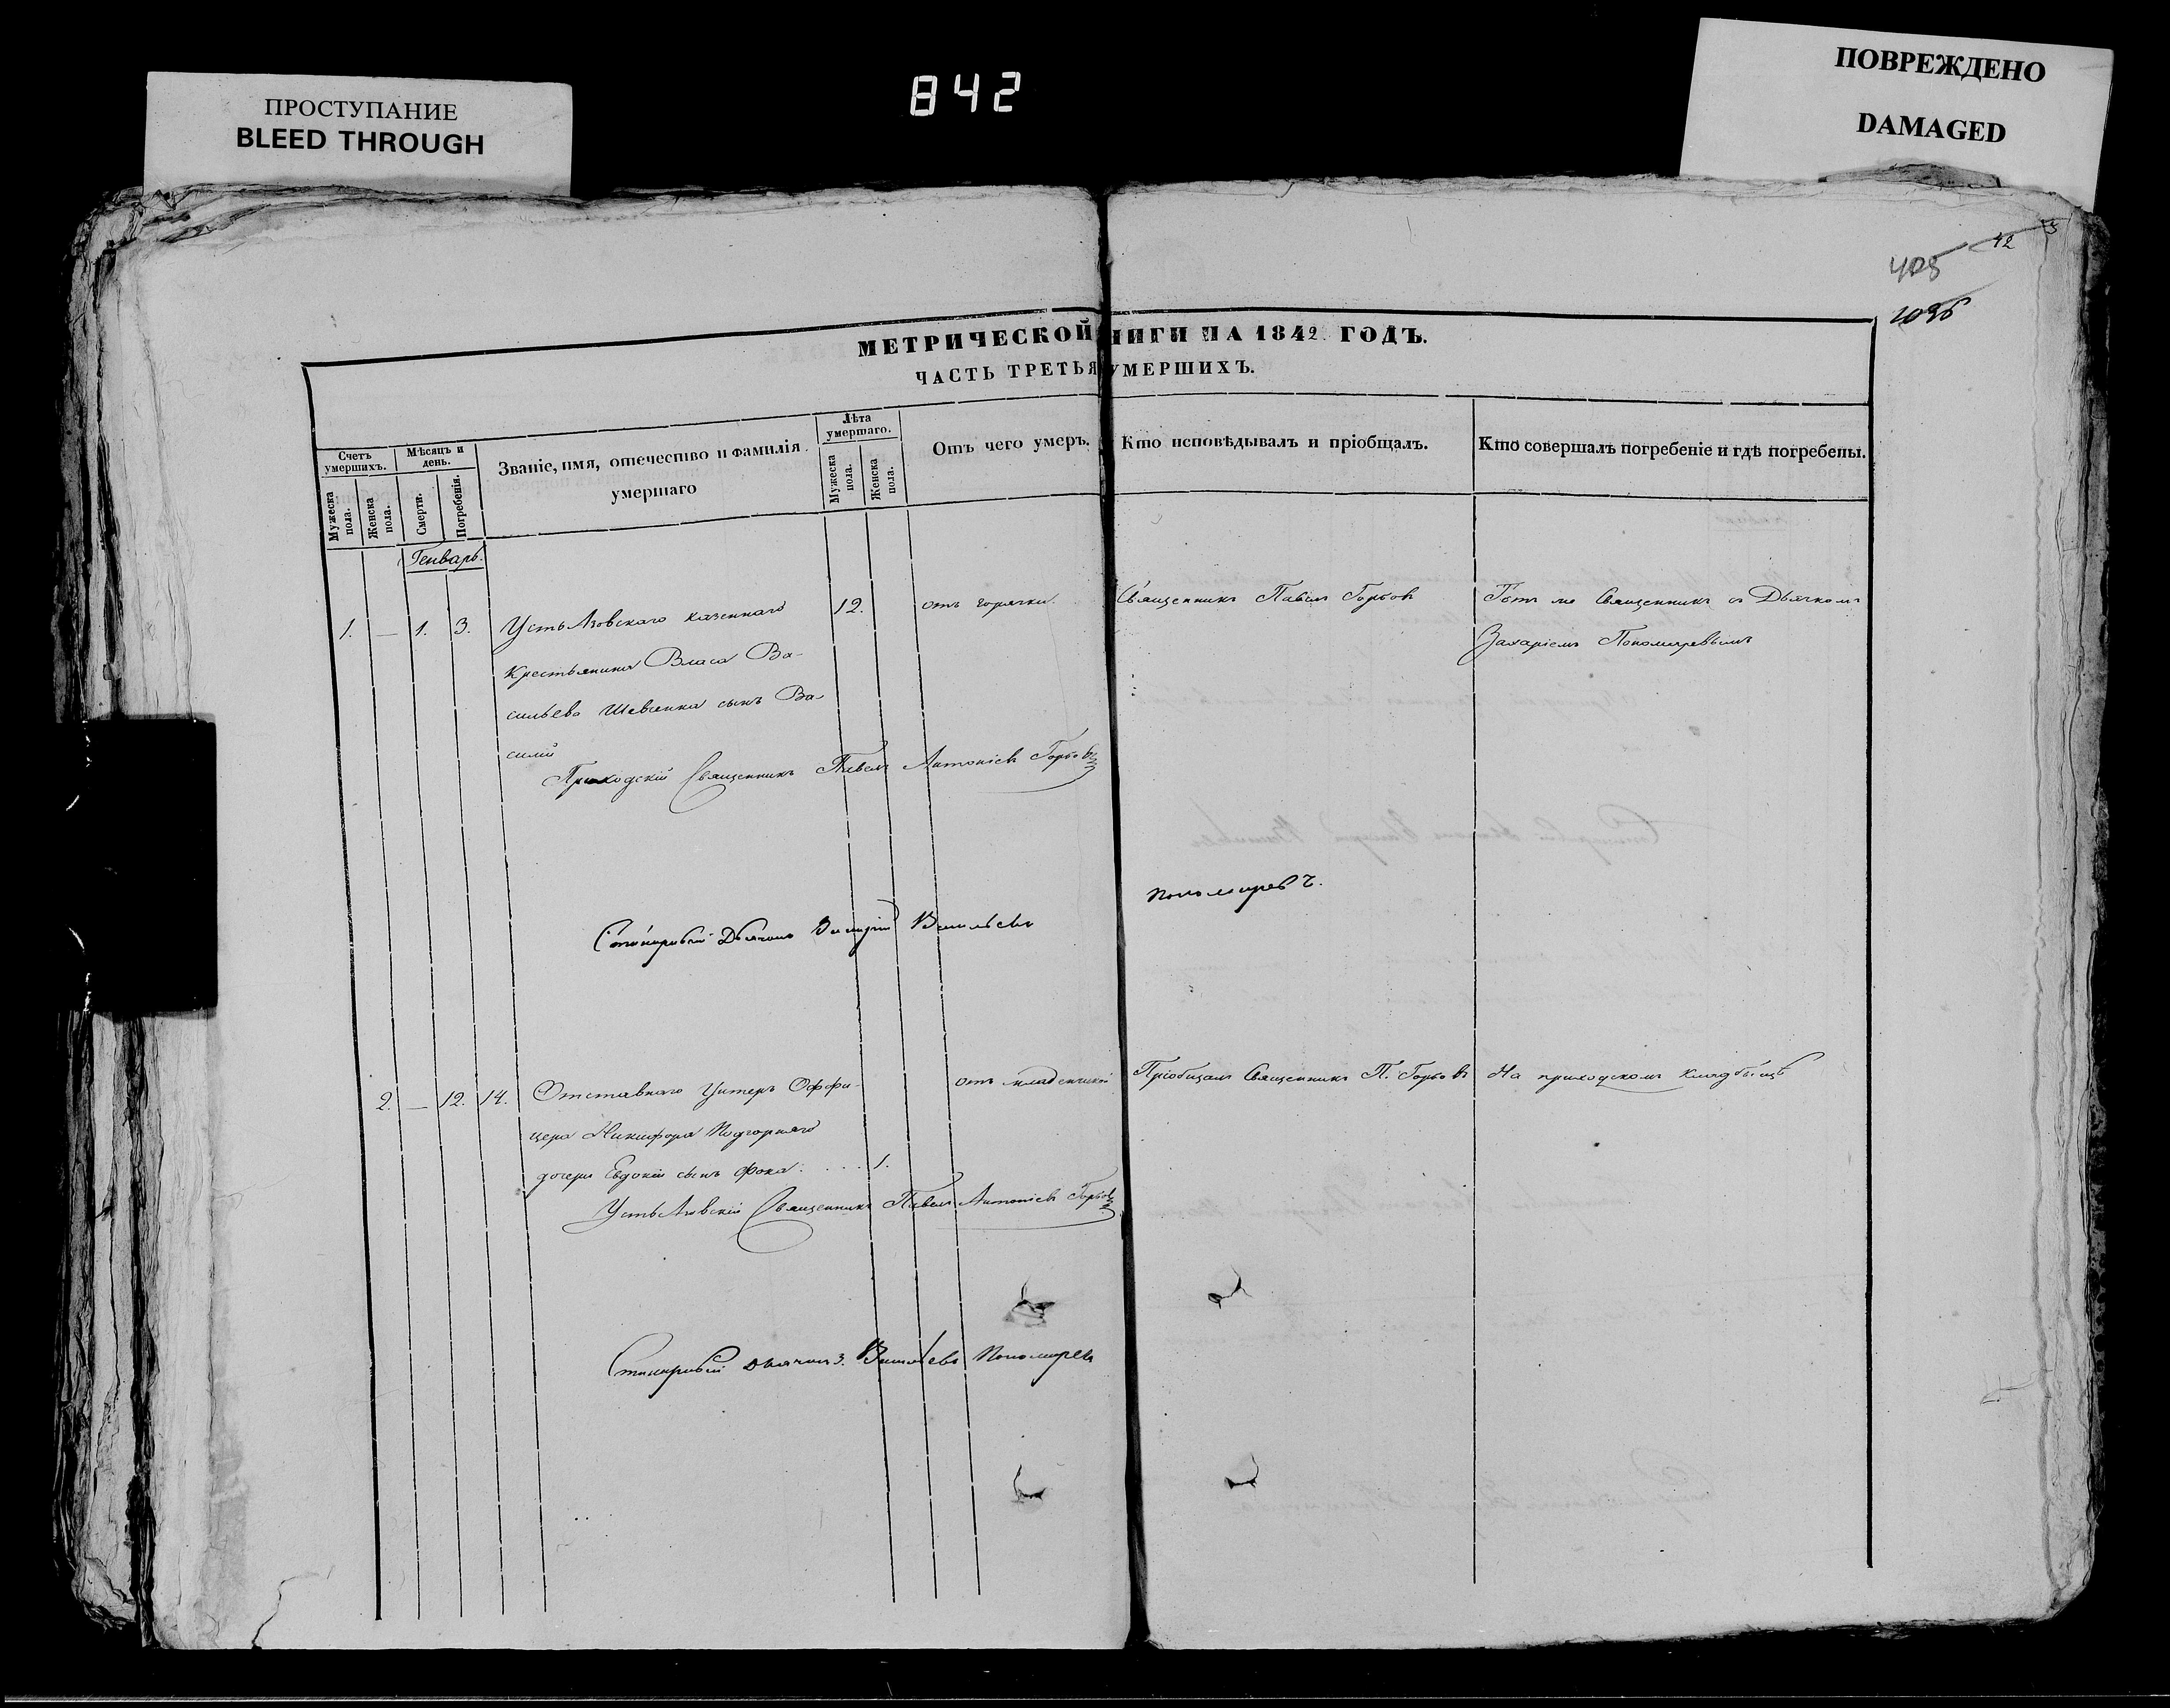 ПРОСТУПАНИЕ
BLEED THROUGH
842
ПОВРЕЖДЕНО
DAMAGED
42
405
1096
МЕТРИЧЕСКОЙ НИГИ НА 1842 ГОДЪ.
ЧАСТЬ ТРЕТЬЯ УМЕРШИХЪ.
Счетъ умершихъ.
Мужеска пола.
Женска пола.
Мѣсяцъ и день.
Смерти.
Погребенія.
Званіе, имя, отечество и фамилія
умершаго
Лѣта умершаго.
Мужеска пола.
Женска пола.
Отъ чего умеръ.
Кто исповѣдывалъ и пріобщалъ.
Кто совершалъ погребеніе и гдѣ погребены.
Генварь.
1. — 1. 3. Усть Азовскаго казеннаго 12. отъ горячки. Священникъ Павелъ Горбовъ Тотъ же Священникъ съ Дьячкомъ
Крестьянина Власа Ва- Захаріемъ Пономаревымъ
сильева Шевченка сынъ Ва-
силій
Приходскій Священникъ Павелъ Антоніевъ Горбовъ
Дьячокъ Захарій Васильевъ Пономаревъ.
2. — 12. 14. Отставнаго Унтеръ Оффи- отъ младенческой Пріобщалъ Священникъ П. Горбовъ На приходскомъ кладбищѣ
цера Никифора Подгорняго
дочери Евдокіи сынъ Фока. . . . 1.
Усть Азовскій Священникъ Павелъ Антоніевъ Горбовъ
дьячокъ З. Васильевъ Пономаревъ